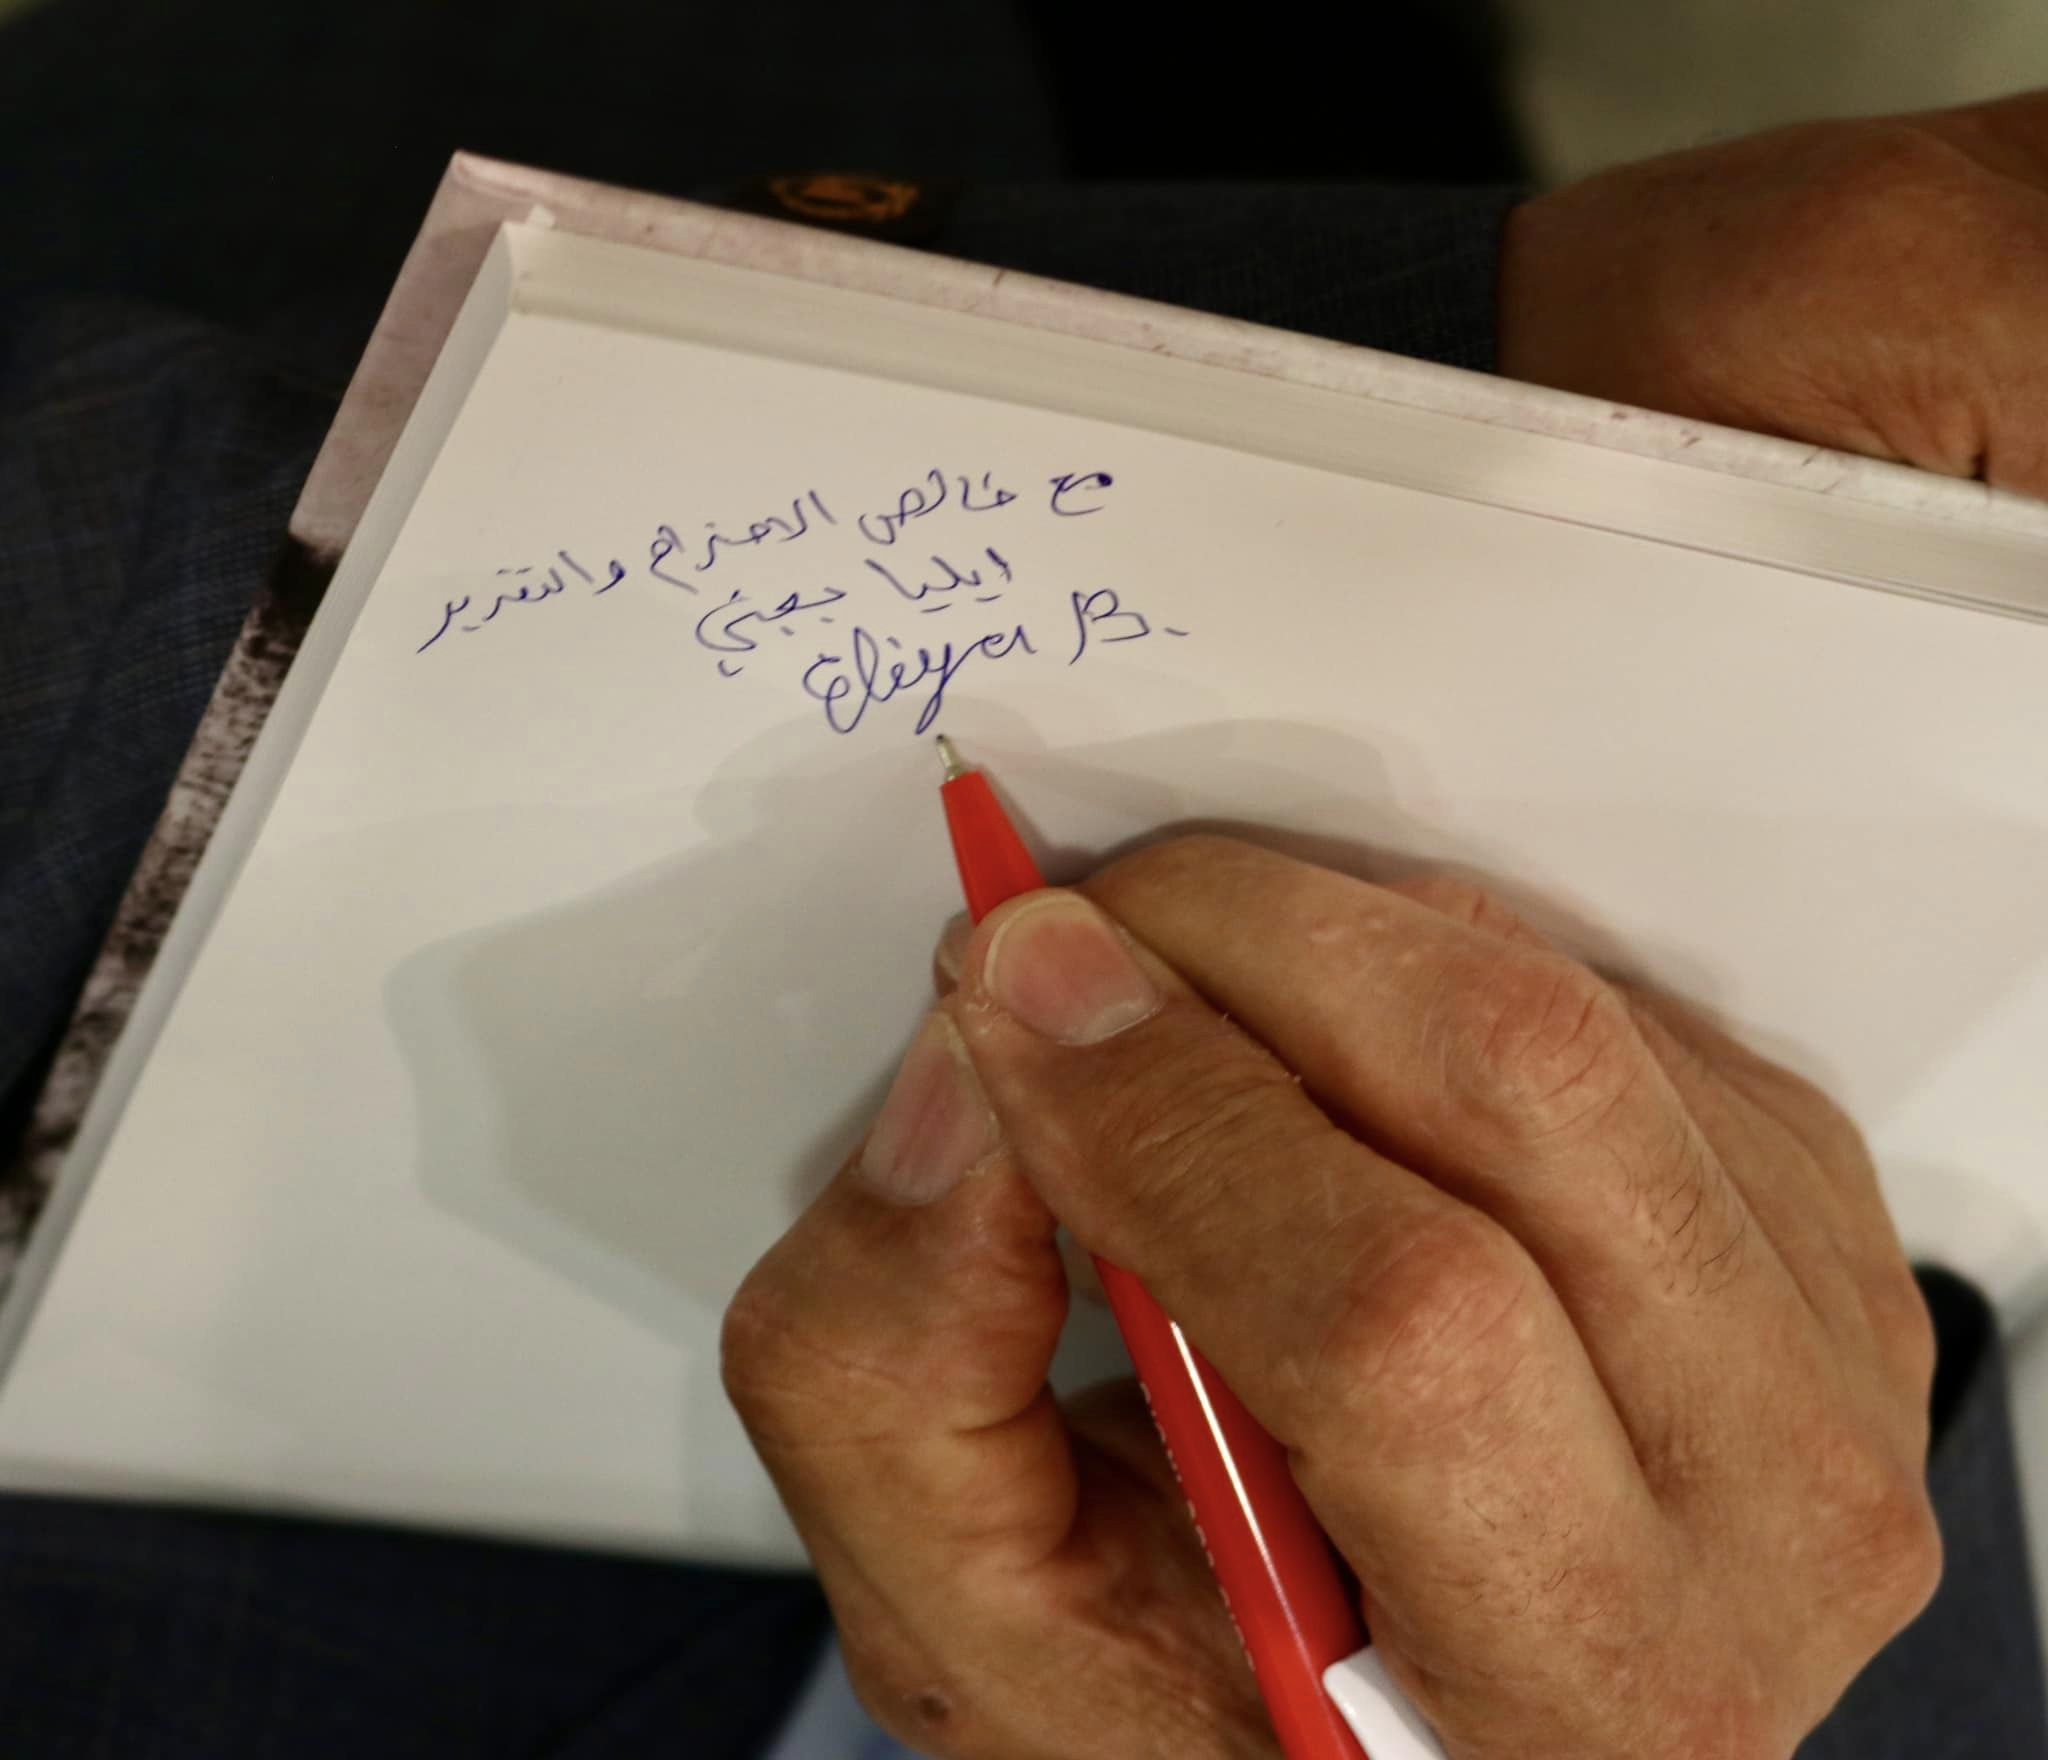 مع خالص الاحترام والتقدير
ايليا بجني
Eliya B.